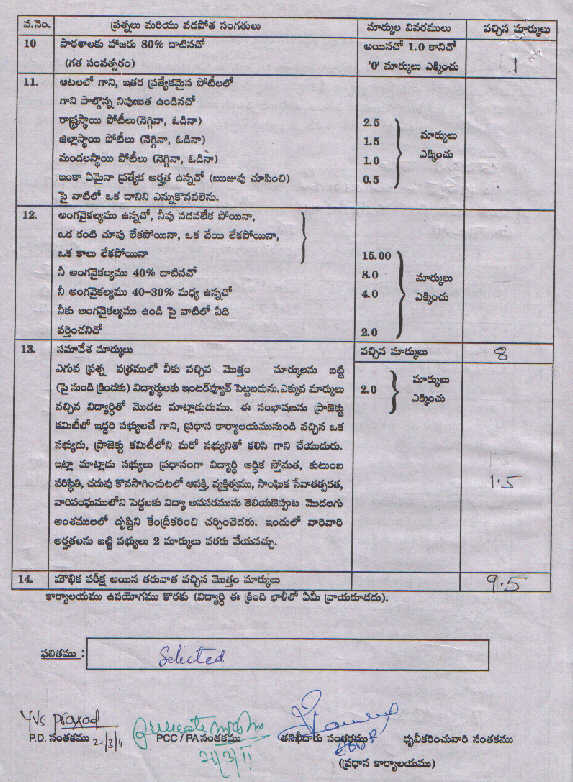 వ.నెం. ప్రశ్నలు మరియు వడపోత సంగతులు మార్కుల వివరములు వచ్చిన మార్కులు
10 పాఠశాలకు హాజరు 80% దాటినచో అయినచో 1.0 కానిచో 1
(గత సంవత్సరం) '0' మార్కులు ఎక్కించు
11. ఆటలలో గాని, ఇతర ప్రత్యేకమైన పోటీలలో
గాని పాల్గొన్న నిపుణత ఉండినచో
రాష్ట్రస్థాయి పోటీలు(నెగ్గినా, ఓడినా) 2.5
జిల్లాస్థాయి పోటీలు (నెగ్గినా, ఓడినా) 1.5 మార్కులు
మండలస్థాయి పోటీలు (నెగ్గినా, ఓడినా) 1.0 ఎక్కించు
ఇంకా ఏమైనా ప్రత్యేక అర్హత ఉన్నచో (ఋజువు చూపించి) 0.5
పై వాటిలో ఒక దానిని ఎన్నుకొనవలెను.
12. అంగవైకల్యము ఉన్నచో, నీవు నడవలేక పోయినా,
ఒక కంటి చూపు లేకపోయినా, ఒక చేయి లేకపోయినా,
ఒక కాలు లేకపోయినా 15.00
నీ అంగవైకల్యము 40% దాటినచో 8.0 మార్కులు
నీ అంగవైకల్యము 40-30% మధ్య ఉన్నచో 4.0 ఎక్కించు
నీకు అంగవైకల్యము ఉండి పై వాటిలో ఏది
వర్తించనిచో 2.0
13. సమావేశ మార్కులు వచ్చిన మార్కులు 8
ఎగువ ప్రశ్న పత్రములో నీకు వచ్చిన మొత్తం మార్కులను బట్టి మార్కులు
(పై నుండి క్రిందకు) విద్యార్థులకు ఇంటర్వ్యూకై పెట్టబడును.ఎక్కువ మార్కులు 2.0 ఎక్కించు
వచ్చిన విద్యార్థితో మొదట మాట్లాడుదుము. ఈ సంభాషణను ప్రాజెక్టు
కమిటీలో ఇద్దరి సభ్యులచే గాని, ప్రధాన కార్యాలయమునుండి వచ్చిన ఒక
సభ్యుడు, ప్రాజెక్టు కమిటీలోని మరో సభ్యునితో కలిసి గాని చేయుదురు.
ఇట్లా మాట్లాడు సభ్యులు ప్రధానంగా విద్యార్థి ఆర్థిక స్తోమత, కుటుంబ
పరిస్థితి, చదువు కొనసాగించుటలో ఆసక్తి, వ్యక్తిత్వము, సాంఘిక సేవాతత్పరత, 1.5
వారిసంఘములోని పెద్దలకు విద్యా అవసరమును తెలియచెప్పుట మొదలగు
అంశములలో దృష్టిని కేంద్రీకరించి చర్చించెదరు. ఇందులో వారివారి
అర్హతలను బట్టి సభ్యులు 2 మార్కులు వరకు వేయవచ్చు.
14. మౌఖిక పరీక్ష అయిన తరువాత వచ్చిన మొత్తం మార్కులు 9.5
కార్యాలయము ఉపయోగము కొరకు (విద్యార్థి ఈ క్రింది ఖాళీలో ఏమీ వ్రాయకూడదు).
ఫలితము : Selected
YVS Prasad
P.D. సంతకము 2/3/11 PCC / PA సంతకము సంతకము ధృవీకరించువారి సంతకము
21/3/11 (ప్రధాన కార్యాలయము)